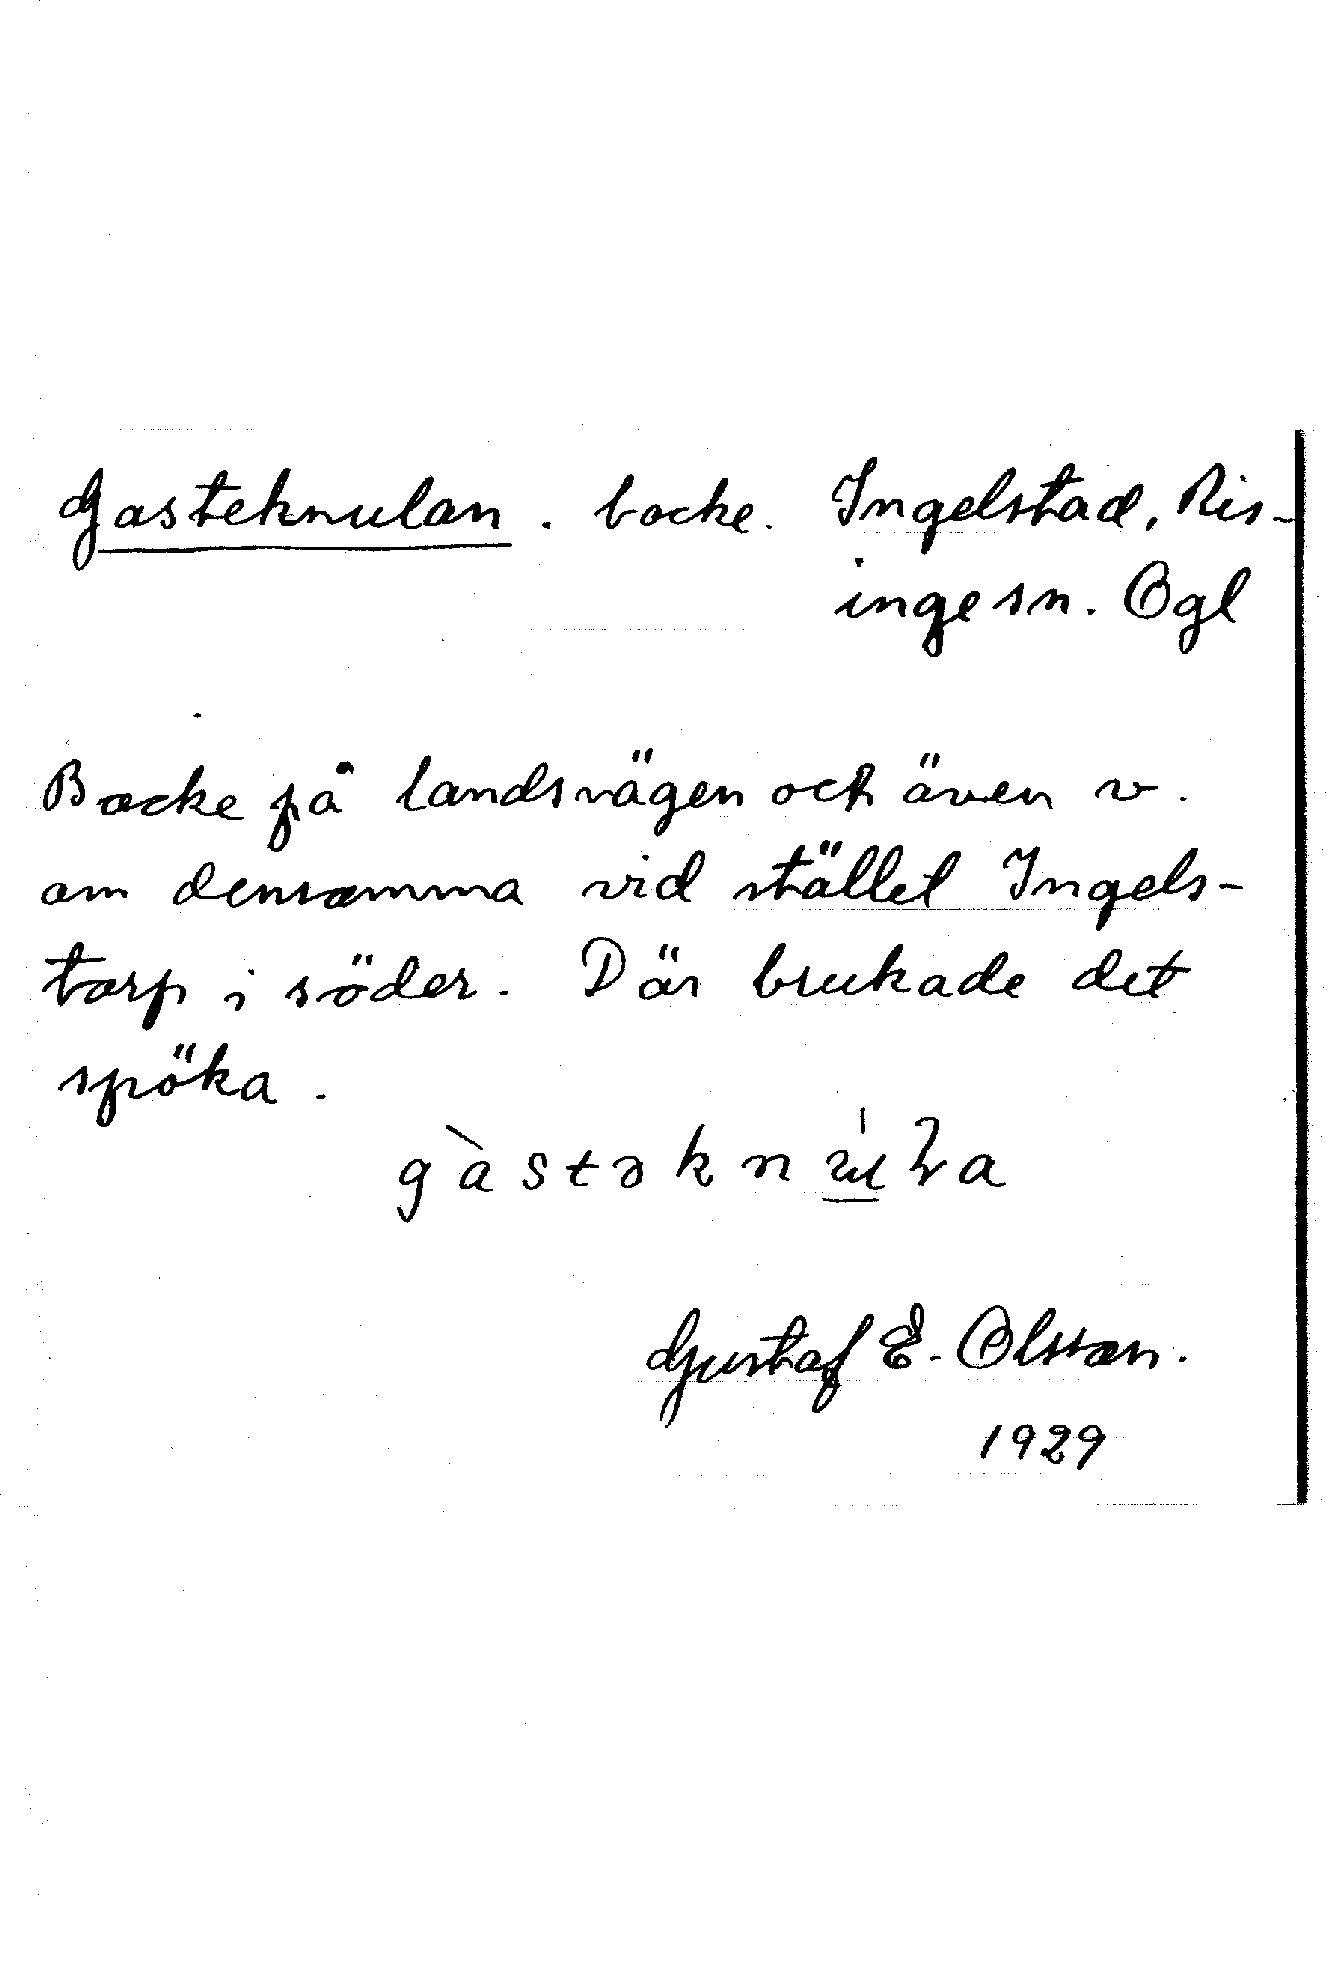 Gasteknulan. backe. Ingelstad, Ris-
inge sn. Ögl
Backe på landsvägen och även v.
om densamma vid stället Ingels-
torp i söder. Där brukade det
spöka.
Gustaf E. Olsson.
1929